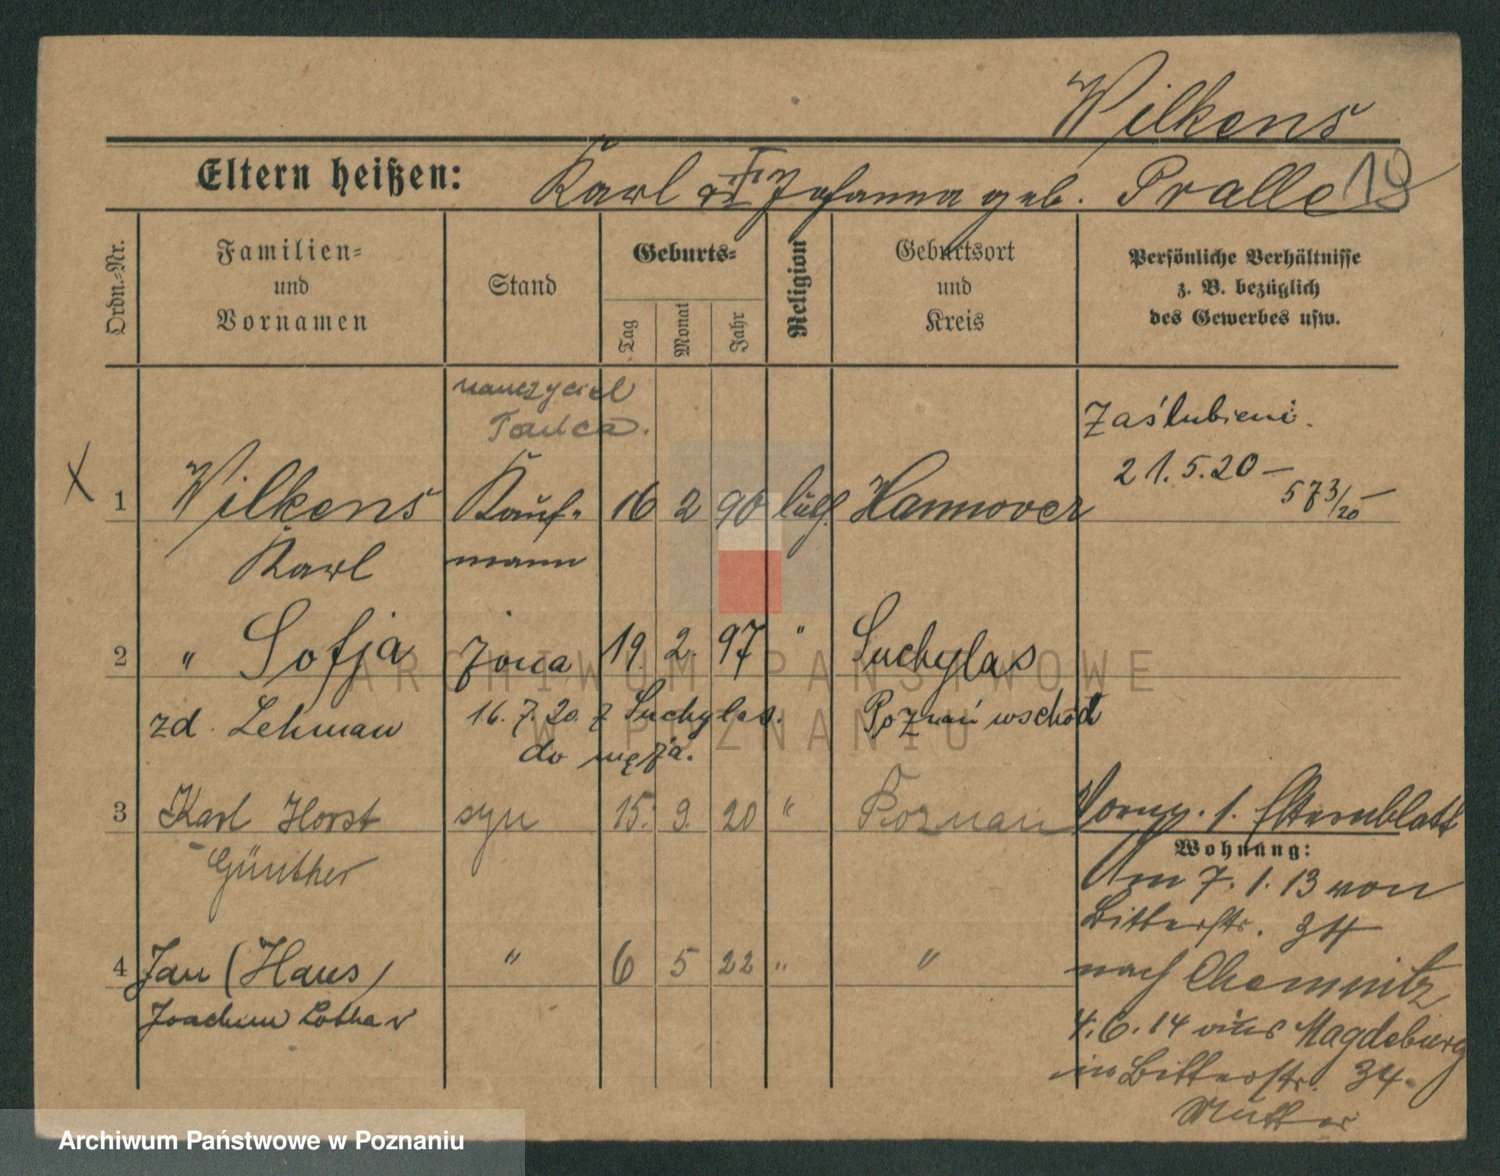 Wilkens
Eltern heißen: Karl Johanna geb. Pralle 19
Ordn.=Nr.
Familien= und Vornamen
Stand
Geburts=
Tag
Monat
Jahr
Religion
Geburtsort und Kreis
Persönliche Verhältnisse z. B. bezüglich des Gewerbes usw.
nauczyciel
Tańca.
Zaślubieni.
21.5.20 –
573/20 –
X 1 Wilkens Kauf- 16 2 90 luth. Hannover
Karl mann
2 " Sofja żona 19. 2. 97 " Suchylas
zd. Lehmann 16.7.20. z Suchylas. Poznań wschód
do męża.
3 Karl Horst syn 15. 9. 20 " Poznań
Günther
Vorm. s. Elternblatt
Wohnung:
Am 7.1.13 von
Bitterstr. 34
4 Jan (Hans) " 6 5 22 " "
Joachim Lothar
nach Chemnitz
4.6.14 Magdeburg
in Bitterstr. 34.
Mutter
ARCHIWUM PAŃSTWOWE
W POZNANIU
Archiwum Państwowe w Poznaniu